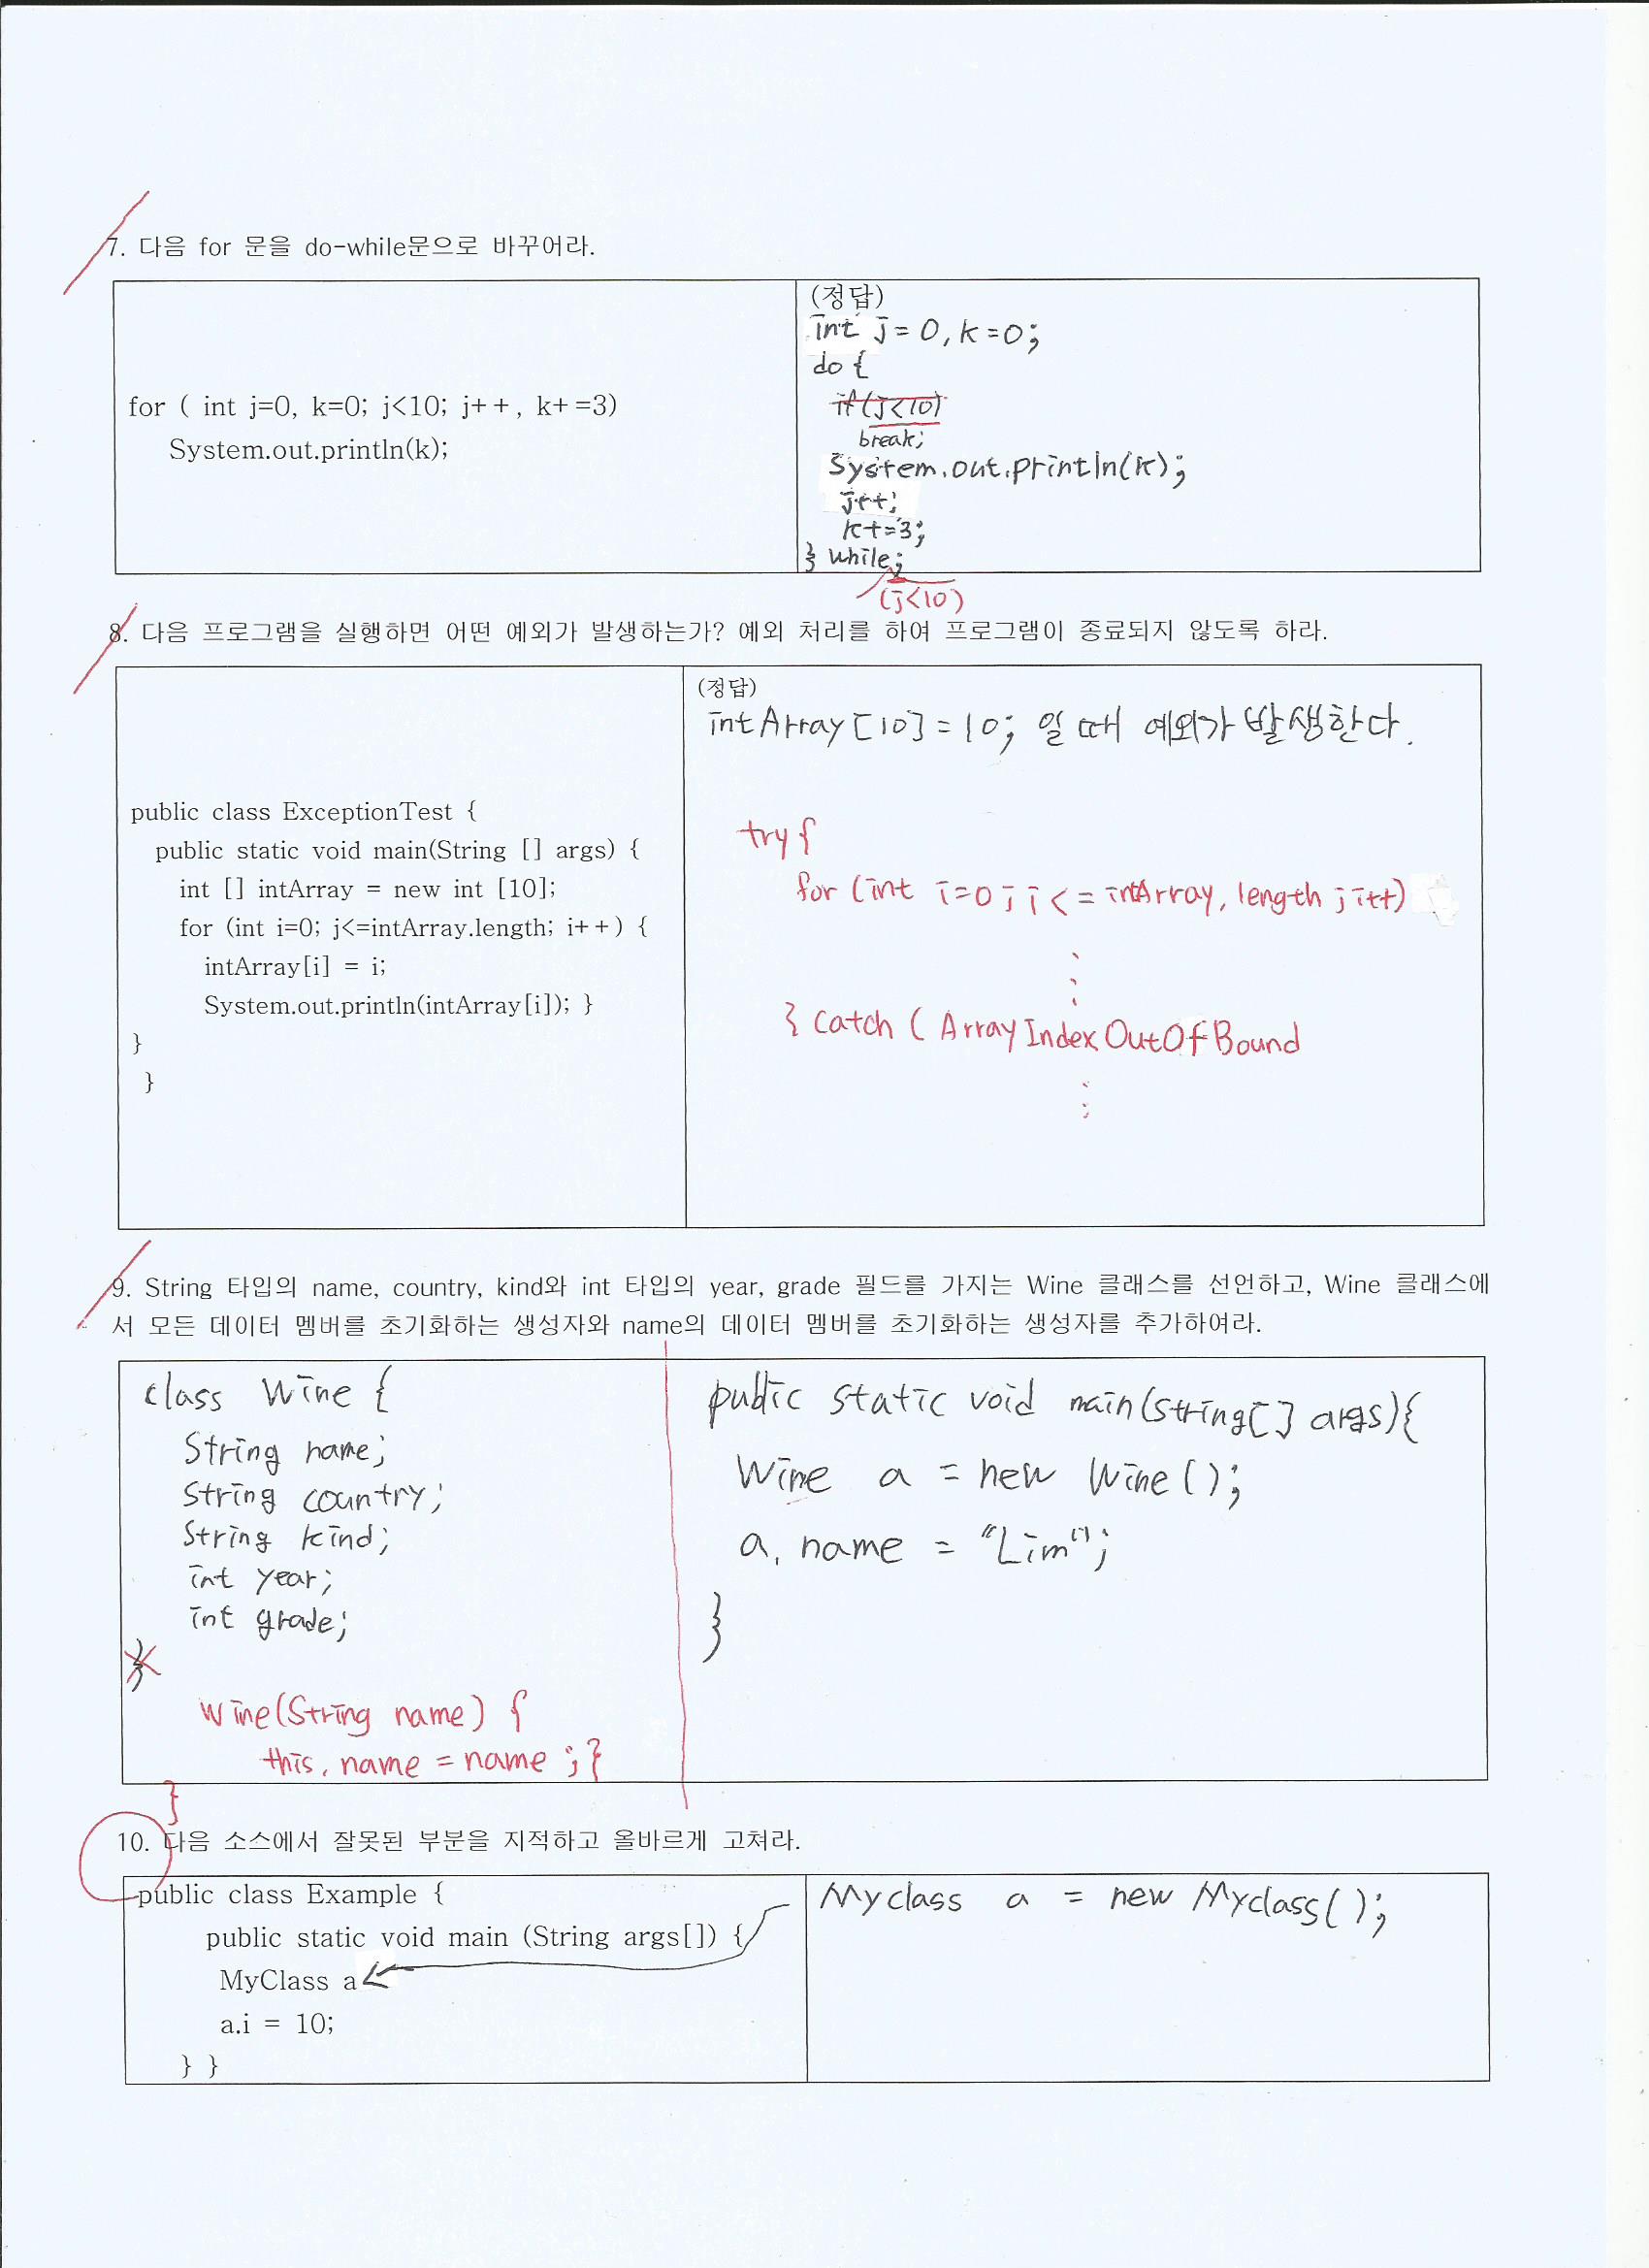 7. 다음 for 문을 do-while문으로 바꾸어라.
for ( int j=0, k=0; j<10; j++, k+=3)
System.out.println(k);
(정답)
int j=0, k=0;
do {
if(j<10)
break;
System.out.println(k);
j++;
k+=3;
} while;
(j<10)
8. 다음 프로그램을 실행하면 어떤 예외가 발생하는가? 예외 처리를 하여 프로그램이 종료되지 않도록 하라.
public class ExceptionTest {
public static void main(String [] args) {
int [] intArray = new int [10];
for (int i=0; j<=intArray.length; i++) {
intArray[i] = i;
System.out.println(intArray[i]); }
}
}
(정답)
intArray[10]=10; 일 때 예외가 발생한다.
try{
for (int i=0; i<=intArray.length; i++)
⋮
} catch ( ArrayIndexOutOfBound
⋮
9. String 타입의 name, country, kind와 int 타입의 year, grade 필드를 가지는 Wine 클래스를 선언하고, Wine 클래스에
서 모든 데이터 멤버를 초기화하는 생성자와 name의 데이터 멤버를 초기화하는 생성자를 추가하여라.
class Wine {
String name;
String country;
String kind;
int year;
int grade;
}
Wine(String name) {
this.name = name ; }
}
public static void main(String[] args){
Wine a = new Wine();
a.name = "Lim";
}
10. 다음 소스에서 잘못된 부분을 지적하고 올바르게 고쳐라.
public class Example {
public static void main (String args[]) {
MyClass a
a.i = 10;
} }
Myclass a = new Myclass();